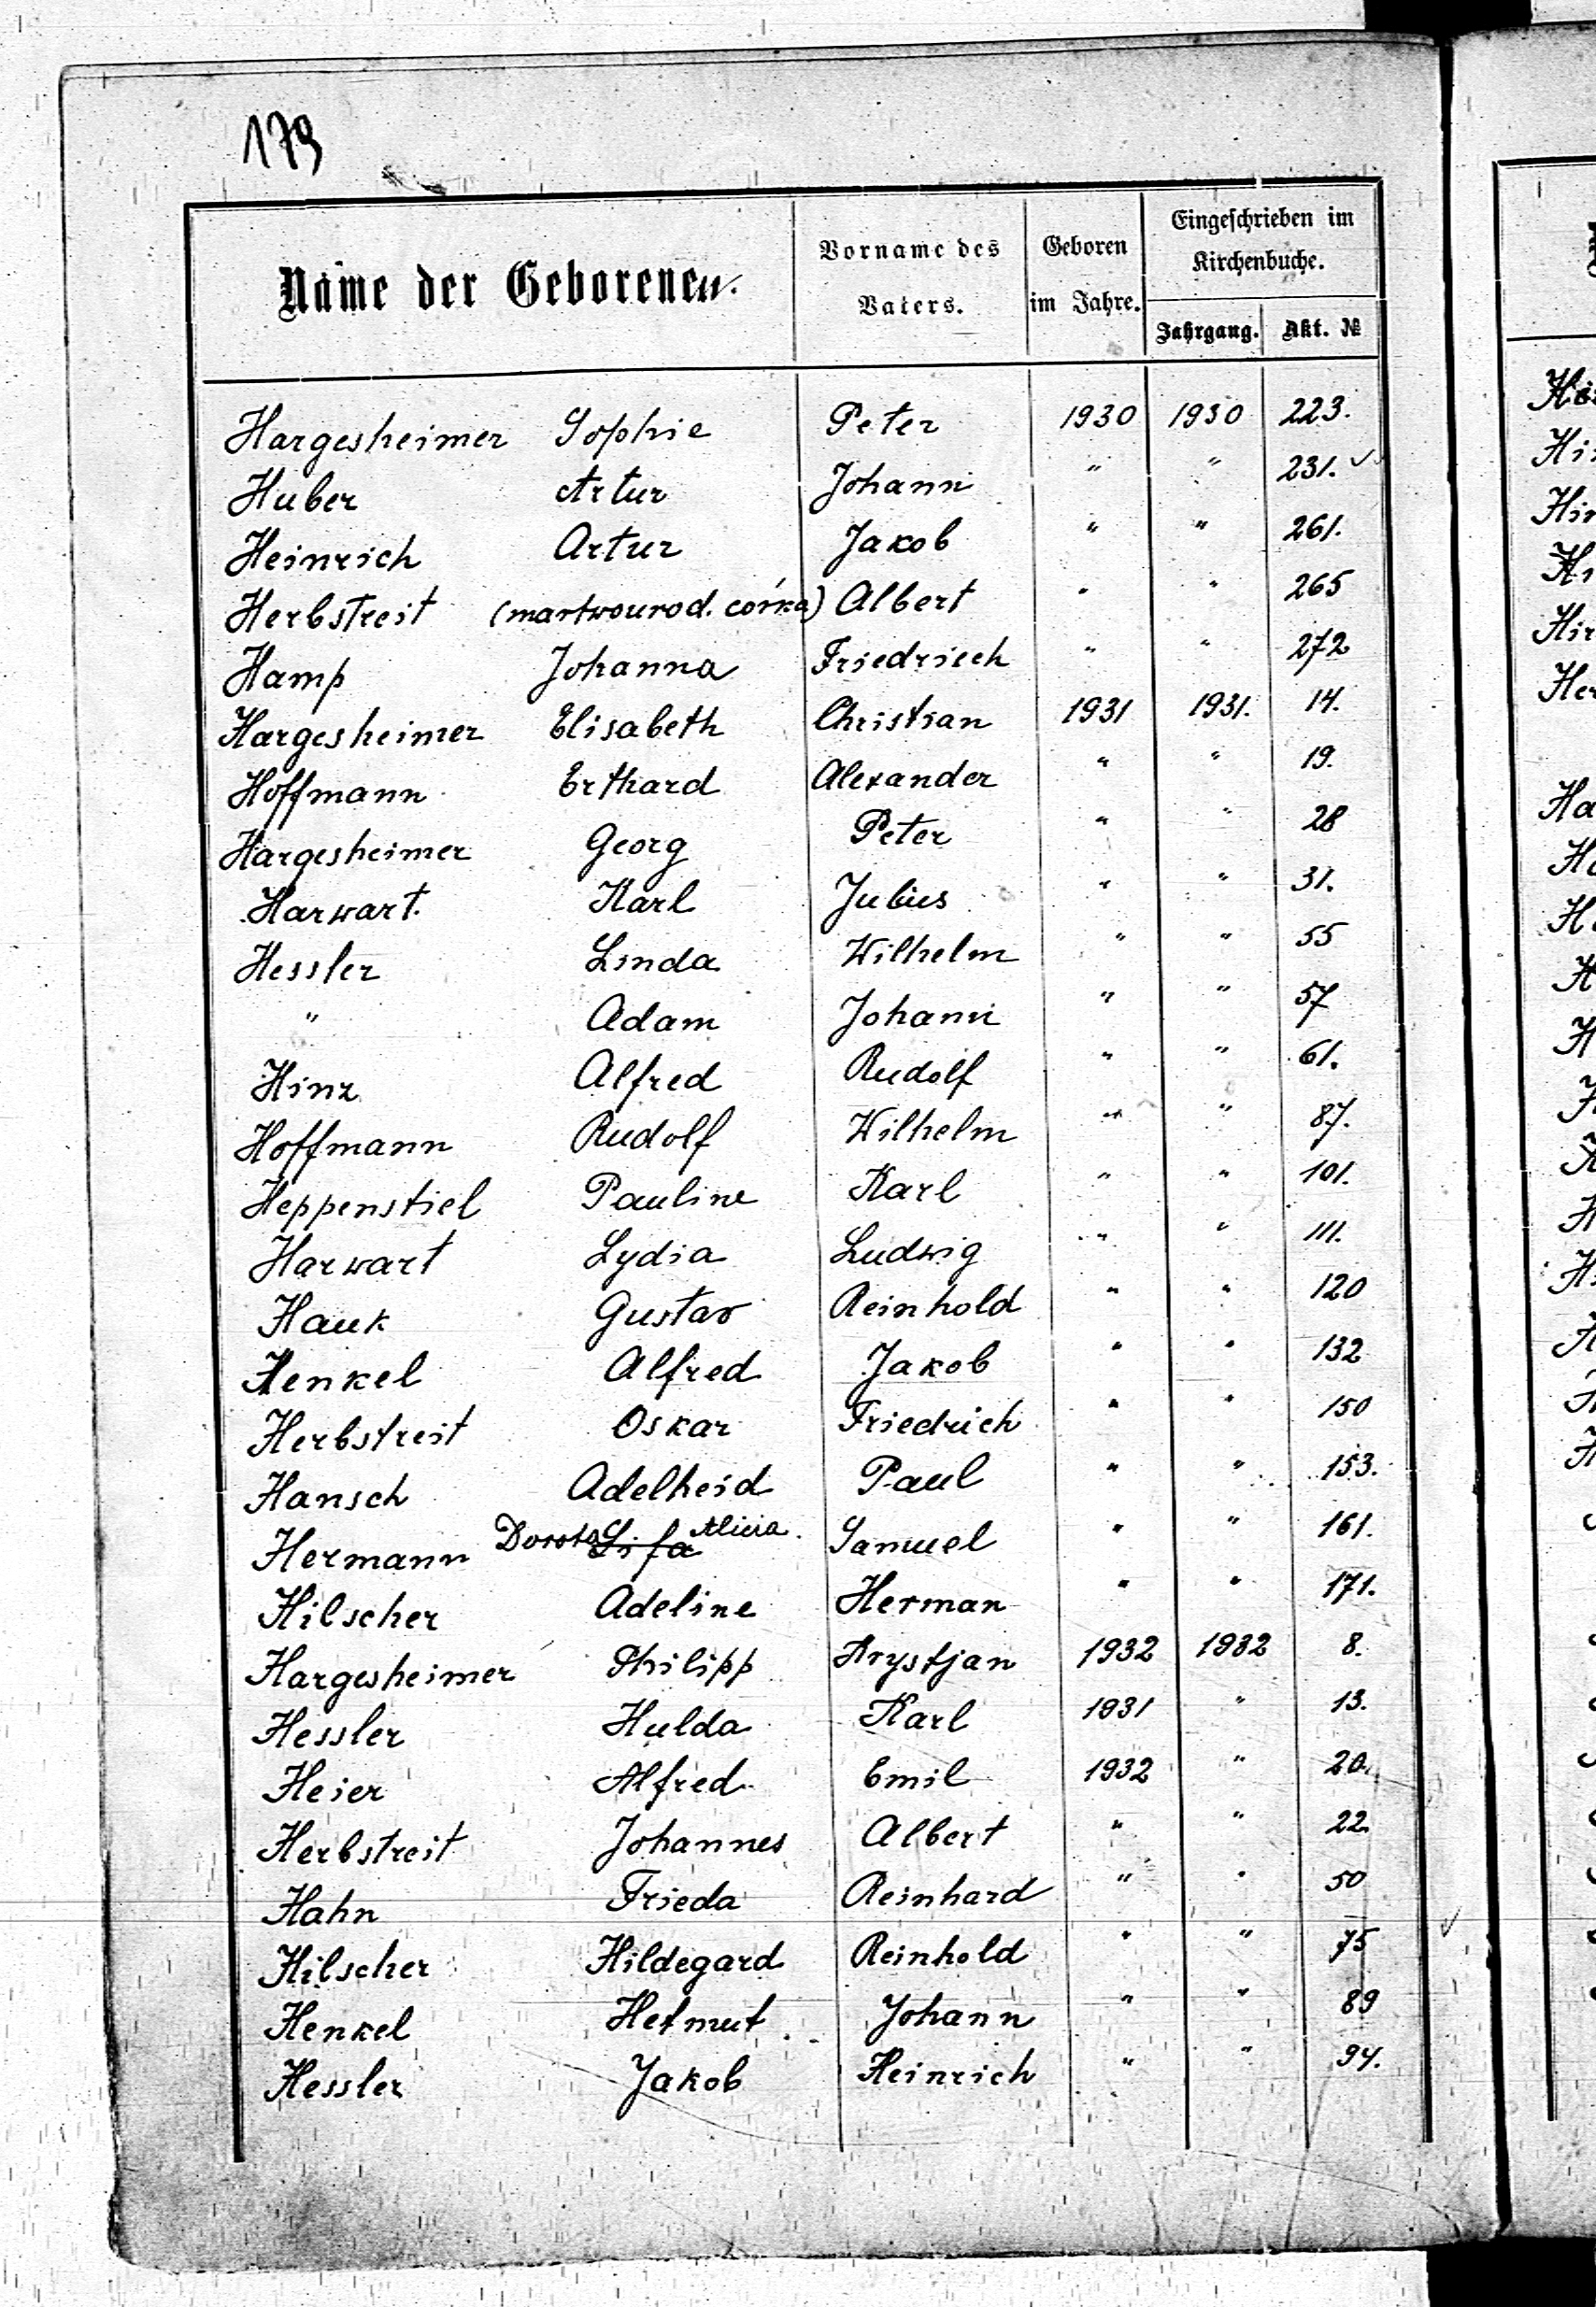 179
Name der Geborenen.
Vorname des Vaters.
Geboren im Jahre.
Eingeschrieben im Kirchenbuche.
Jahrgang. Akt. №
Hargesheimer Sophie Peter 1930 1930 223.
Huber Artur Johann " " 231. ✓
Heinrich Artur Jakob " " 261.
Herbstreit (martwourod. córka) Albert " " 265
Hamp Johanna Friedrich " " 272
Hargesheimer Elisabeth Christian 1931 1931. 14.
Hoffmann Erthard Alexander " " 19.
Hargesheimer Georg Peter " " 28
Harwart. Karl Julius " " 31.
Hessler Linda Wilhelm " " 55
" Adam Johann " " 57
Hinz Alfred Rudolf " " 61.
Hoffmann Rudolf Wilhelm " " 87.
Heppenstiel Pauline Karl " " 101.
Harwart Lydia Ludwig " " 111.
Hauk Gustav Reinhold " " 120
Henkel Alfred Jakob " " 132
Herbstreit Oskar Friedrich " " 150
Hansch Adelheid Paul " " 153.
Hermann Dorota Alicia. Samuel " " 161.
Hilscher Adeline Herman " " 171.
Hargesheimer Philipp Krystjan 1932 1932 8.
Hessler Hulda Karl 1931 " 13.
Heier Alfred Emil 1932 " 20.
Herbstreit Johannes Albert " " 22.
Hahn Frieda Reinhard " " 50
Hilscher Hildegard Reinhold " " 75
Henkel Helmut Johann " " 89
Hessler Jakob Heinrich " " 94.